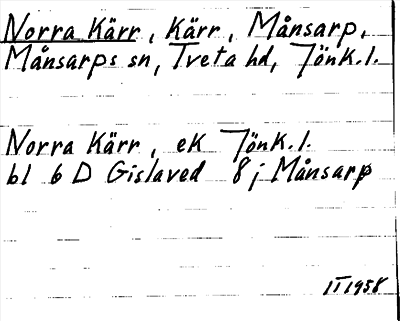 Norra Kärr, Kärr, Månsarp,
Månsarps sn, Tveta hd, Jönk. l.
Norra Kärr, ek Jönk. l.
bl 6 D Gislaved 8 j Månsarp
II 1958